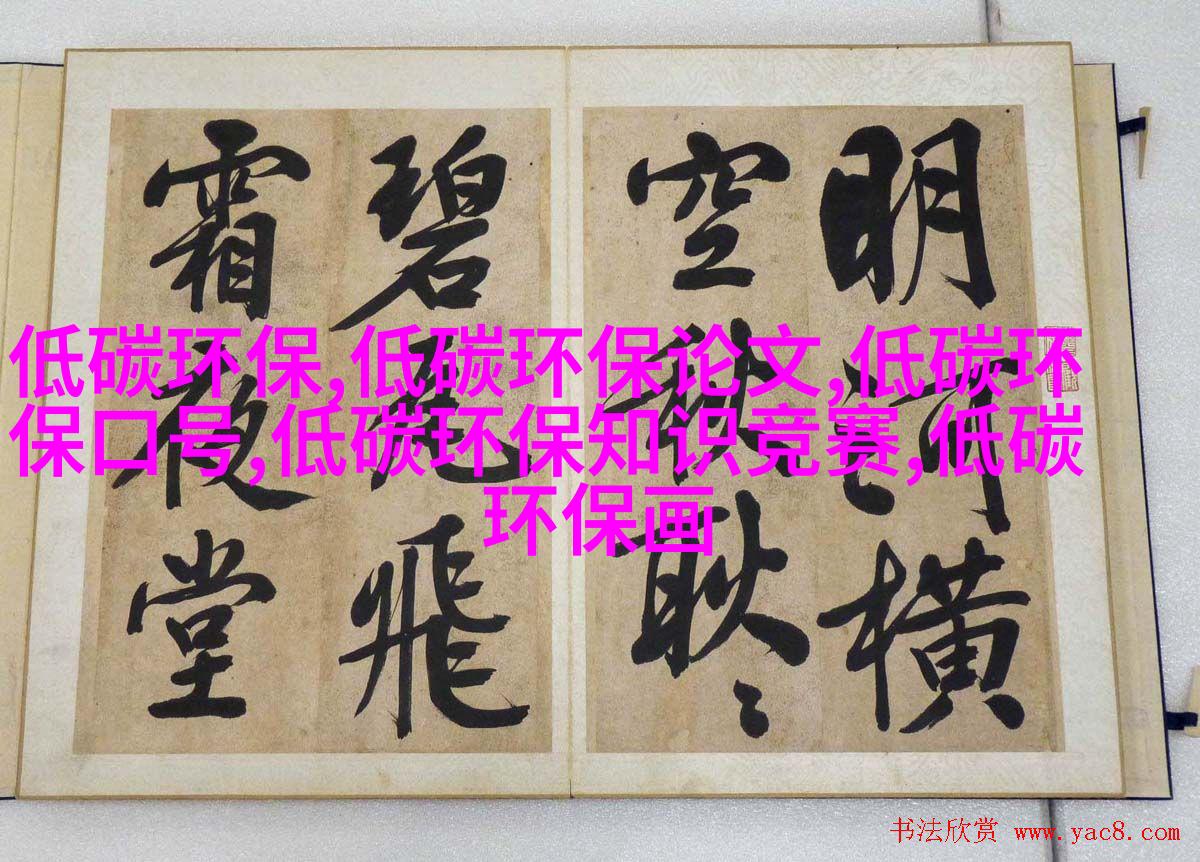 明河橫
空秋耿〻
碧飛
霜夜堂
低碳环保,低碳环保论文,低碳环
保口号,低碳环保知识竞赛,低碳
环保画
书法欣赏 www.yac8.com